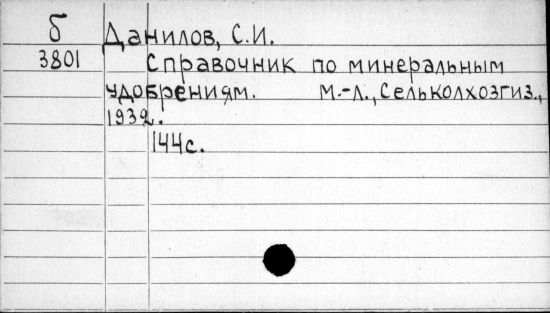 Б
Данилов, С.И.
3801 Справочник по минеральным
удобрениям. М.-Л., Сельколхозгиз.,
1932.
144с.